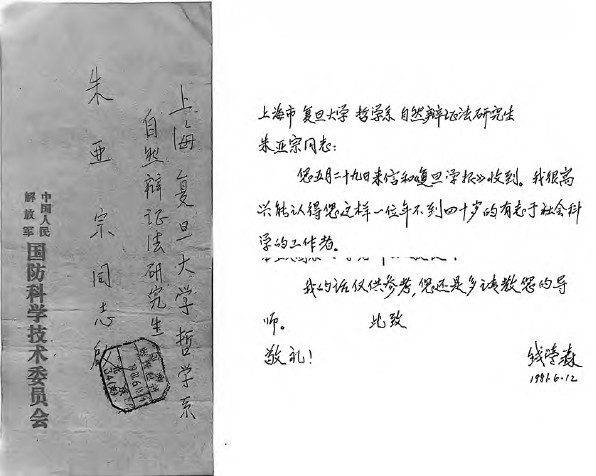 上海复旦大学哲学系
自然辩证法研究生
朱亚宗同志啟
中国人民
解放军
国防科学技术委员会
上海市 复旦大学 哲学系 自然辩证法研究生
朱亚宗同志：
您五月二十九日来信和《复旦学报》收到。我很高
兴能认得您这样一位年不到四十岁的有志于社会科
学的工作者。
我的话仅供参考，您还是多请教您的导
师。 此致
敬礼！
钱学森
1981.6.12